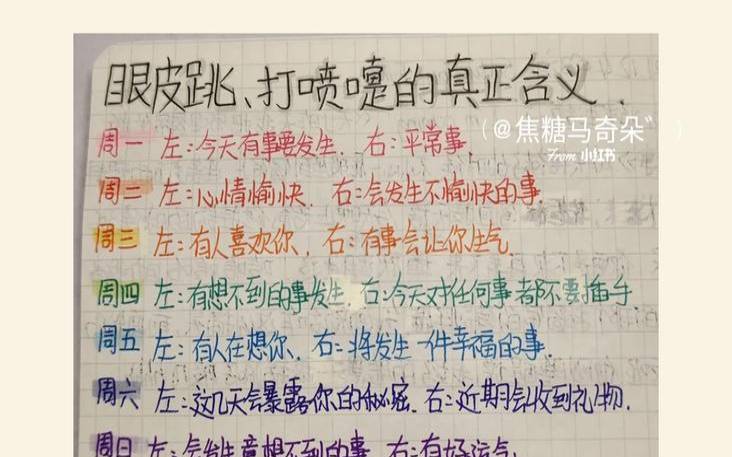 眼皮跳、打喷嚏的真正含义.
(@焦糖马奇朵〃)
From 小红书
周一 左:今天有事要发生. 右:平常事.
周二 左:心情愉快. 右:会发生不愉快的事.
周三 左:有人喜欢你. 右:有事会让你生气.
周四 左:有想不到的事发生. 右:今天对任何事都不要插手.
周五 左:有人在想你. 右:将发生一件幸福的事.
周六 左:这几天会暴露你的秘密. 右:近期会收到礼物.
周日 左:会发生意想不到的事. 右:有好运气.